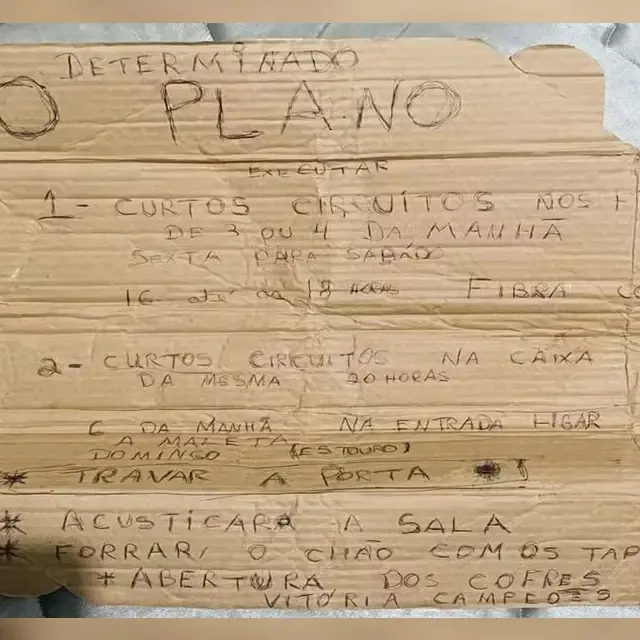 DETERMINADO
O PLANO
EXECUTAR
1 - CURTOS CIRCUITOS NOS F
DE 3 OU 4 DA MANHÃ
SEXTA PARA SABADO
16 até as 18 HORAS FIBRA CO
2 - CURTOS CIRCUITOS NA CAIXA
DA MESMA 20 HORAS
6 DA MANHÃ NA ENTRADA LIGAR
A MALETA
DOMINGO (ESTOURO)
* TRAVAR A PORTA
* ACUSTICAR A SALA
* FORRAR, O CHÃO COM OS TAP
* ABERTURA DOS COFRES
VITÓRIA CAMPEOES